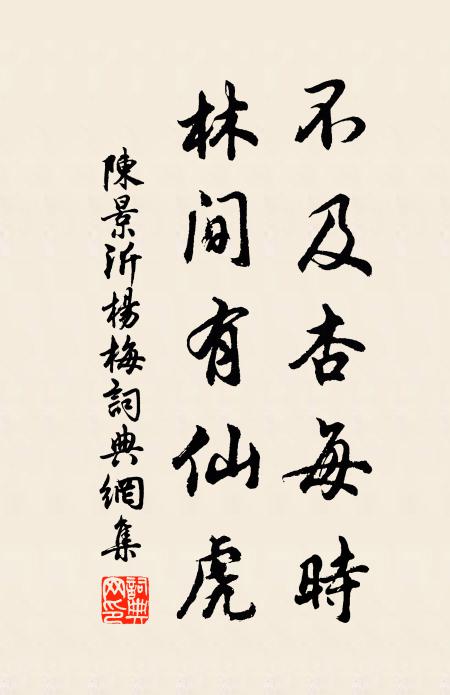 不及杏每時
林間有仙虎
陳景沂楊梅詞典網集
詞典网印